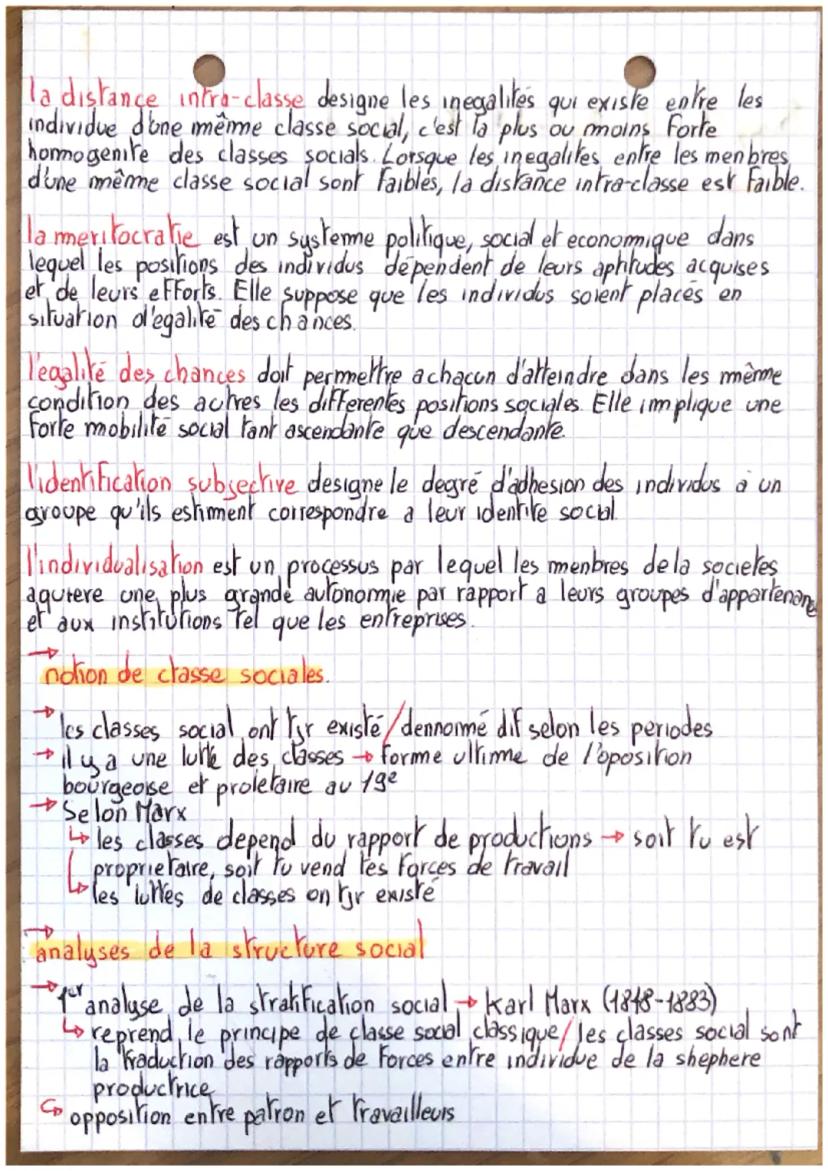 la distance intra-classe designe les inegalités qui existe entre les
individue d'une même classe social, c'est la plus ou moins forte
homogenite des classes socials. Lorsque les inegalites entre les menbres
d'une même classe social sont faibles, la distance intra-classe est faible.
la meritocratie est un systeme politique, social et economique dans
lequel les positions des individus dépendent de leurs aptitudes acquises
et de leurs efforts. Elle suppose que les individus soient placés en
situation d'egalité des chances.
l'egalité des chances doit permettre a chacun d'atteindre dans les même
condition des autres les differentes positions sociales. Elle implique une
forte mobilité social tant ascendante que descendante.
l'identification subjective designe le degré d'adhesion des individus à un
groupe qu'ils estiment correspondre a leur identite social.
l'individualisation est un processus par lequel les menbres de la societes
aquiere une plus grande autonomie par rapport a leurs groupes d'appartenance
et aux institutions tel que les entreprises.
→
notion de classe sociales.
→ les classes social ont tjr existé / dennomé dif selon les periodes
→ il y a une lutte des classes → forme ultime de l'oposition
bourgeoise et proletaire au 19e
→ Selon Marx
↳ les classes depend du rapport de productions → soit tu est
proprietaire, soit tu vend tes forces de travail
↳ les luttes de classes on tjr existé
→
analyses de la structure social
→ 1er analyse de la stratification social → Karl Marx (1818-1883)
↳ reprend le principe de classe social classique / les classes social sont
la traduction des rapports de forces entre individue de la shephere
productrice
↳ opposition entre patron et travailleurs